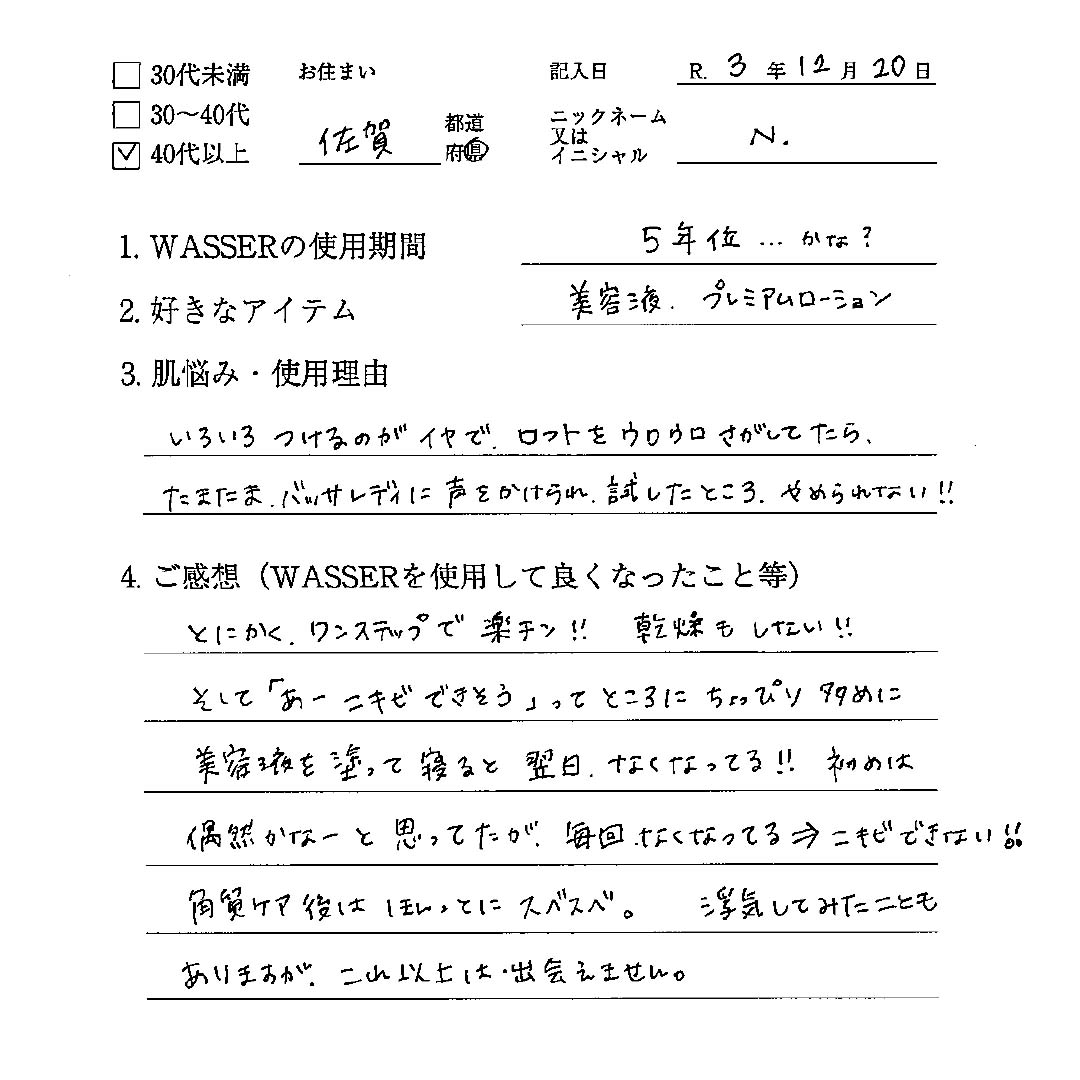 □ 30代未満 お住まい 記入日 R. 3 年 12 月 20 日
□ 30～40代 佐賀 都道府県 ニックネーム又はイニシャル N.
☑ 40代以上
1. WASSERの使用期間 5年位…かな?
2. 好きなアイテム 美容液、プレミアムローション
3. 肌悩み・使用理由
いろいろつけるのがイヤで、ロフトをウロウロさがしてたら、
たまたま、バッサレディに声をかけられ、試したところ、やめられない!!
4. ご感想（WASSERを使用して良くなったこと等）
とにかく、ワンステップで楽チン!! 乾燥もしない!!
そして「あーニキビできそう」ってところにちょっぴり多めに
美容液を塗って寝ると翌日、なくなってる!! 初めは
偶然かなーと思ってたが、毎回、なくなってる⇒ニキビできない!!
角質ケア後はほんっとにスベスベ。 浮気してみたことも
ありますが、これ以上は、出会えません。